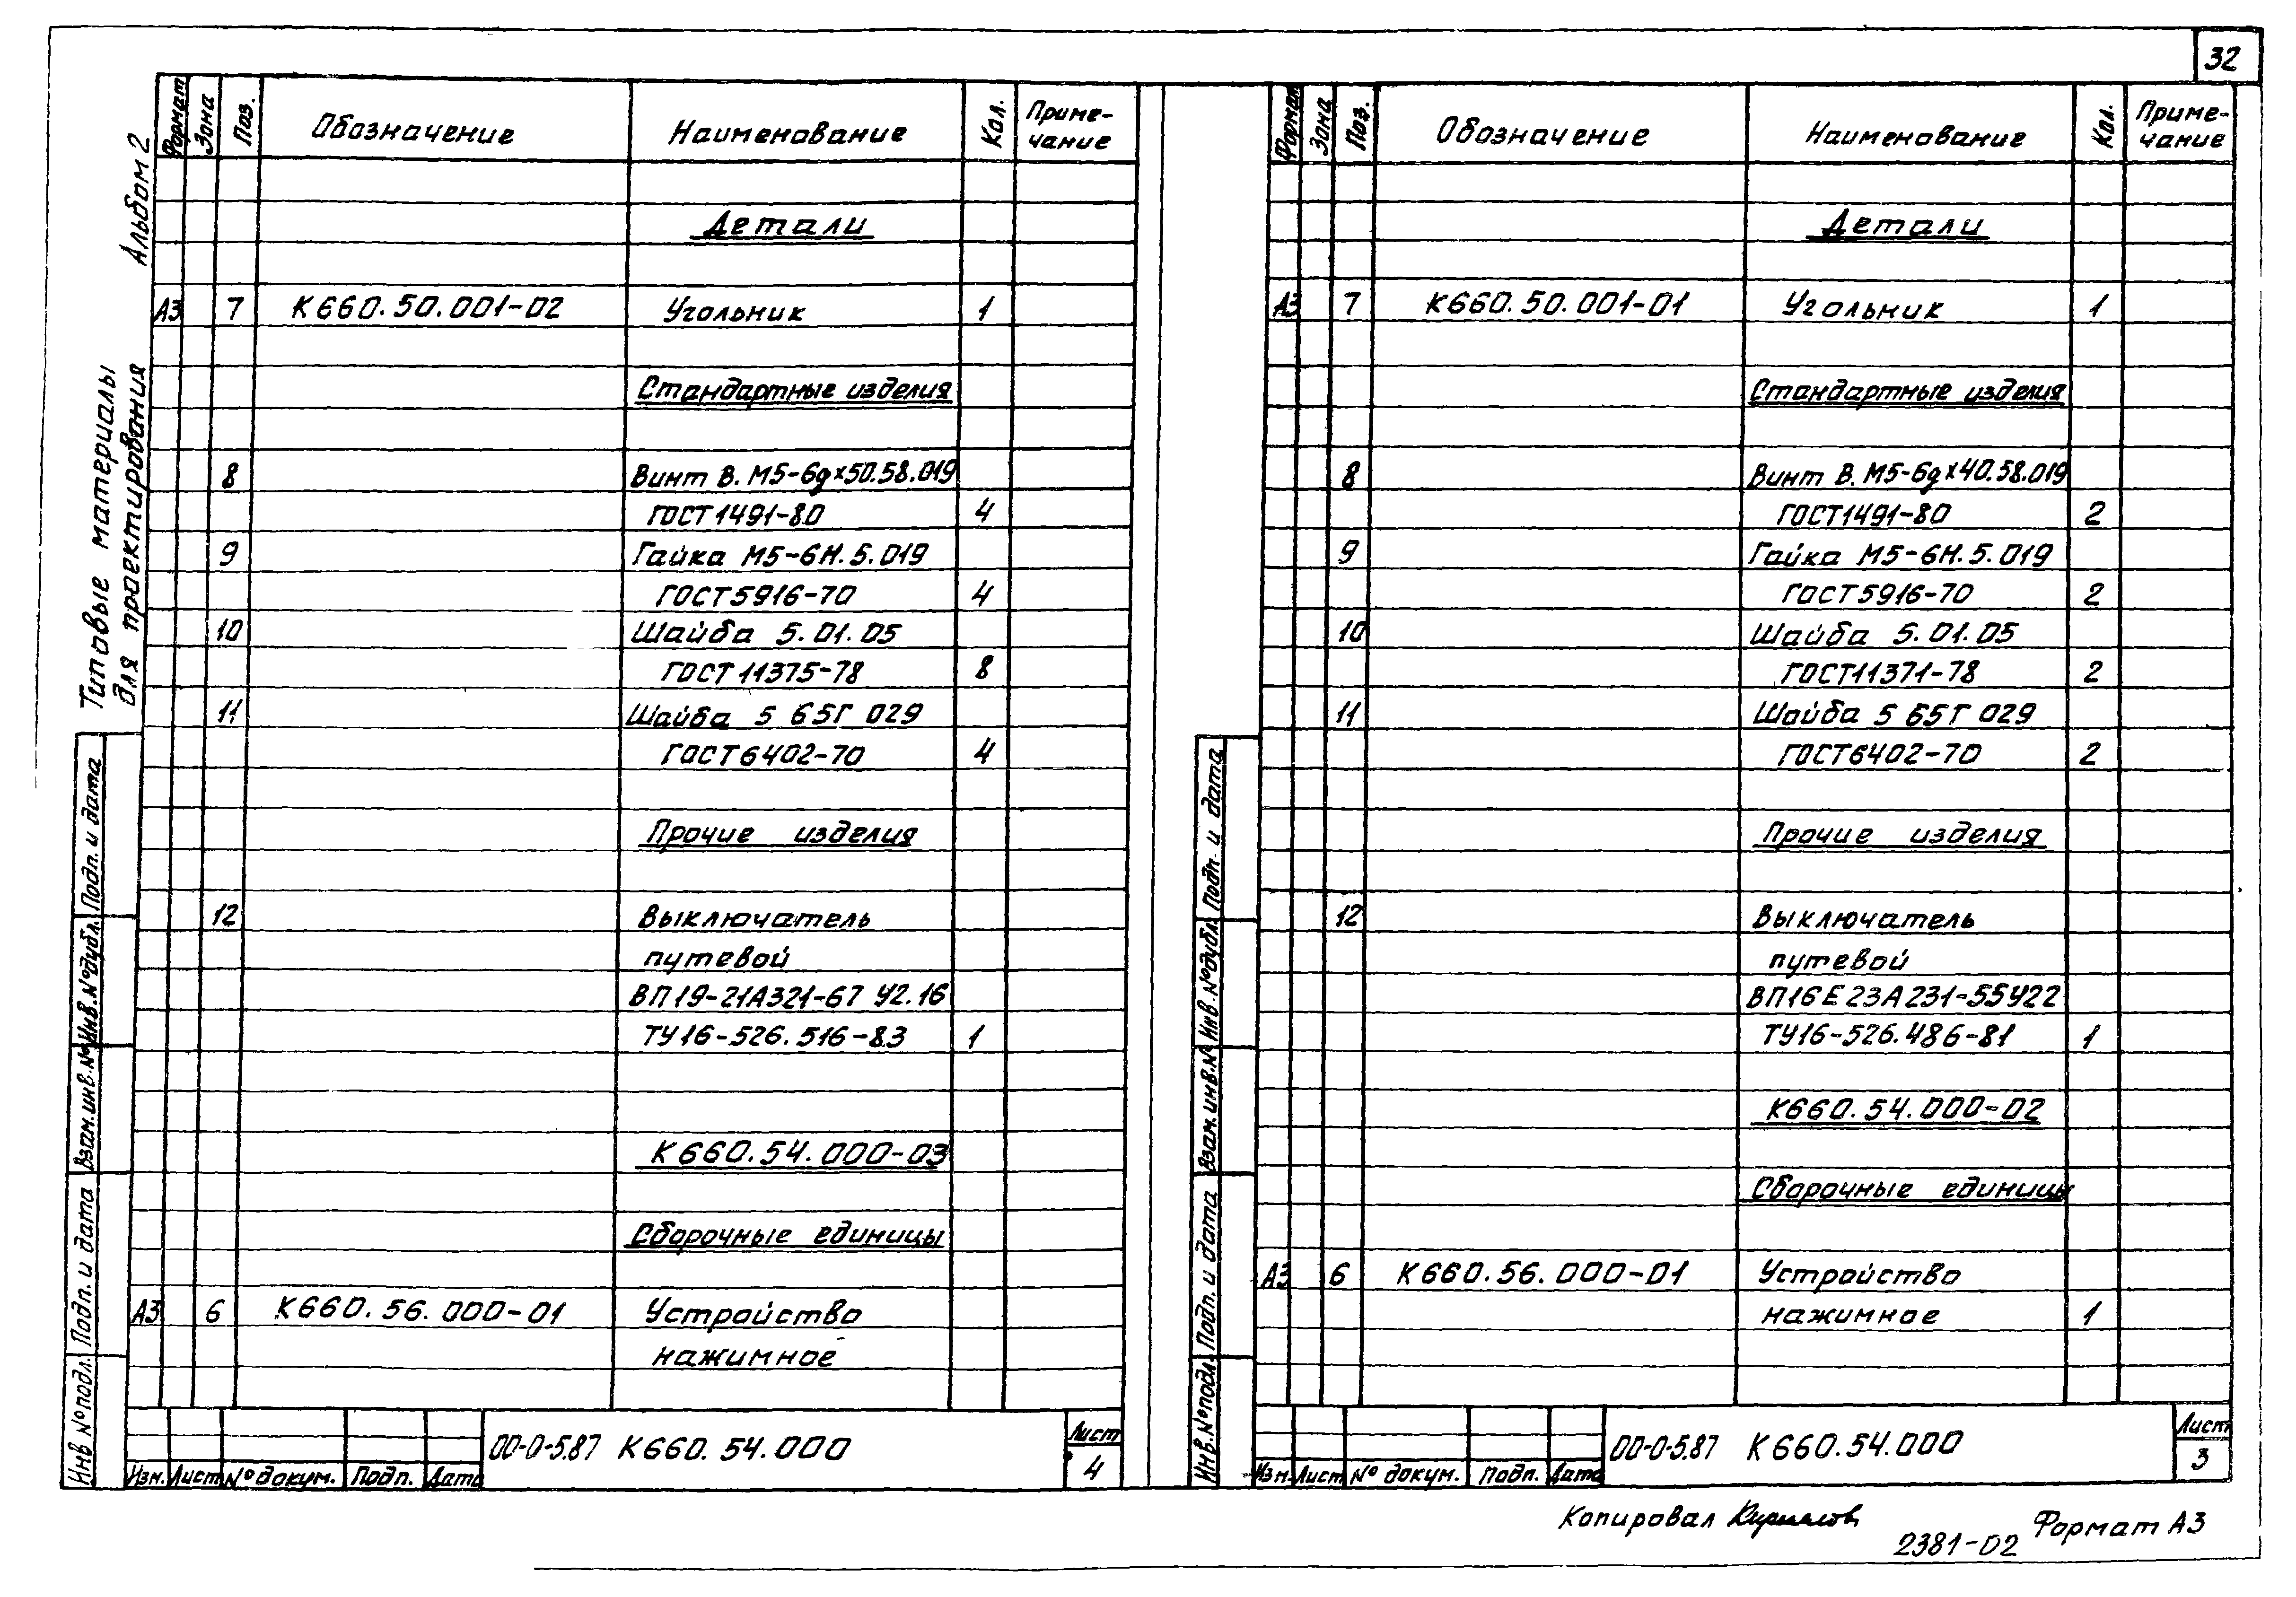 32
Альбом 2
Типовые материалы
для проектирования
Формат Зона Поз. Обозначение Наименование Кол. Приме-
чание
Детали
А3 7 К660.50.001-02 Угольник 1
Стандартные изделия
8 Винт В. М5-6gх50.58.019
ГОСТ 1491-80 4
9 Гайка М5-6Н.5.019
ГОСТ 5916-70 4
10 Шайба 5.01.05
ГОСТ 11375-78 8
11 Шайба 5 65Г 029
ГОСТ 6402-70 4
Прочие изделия
12 Выключатель
путевой
ВП19-21А321-67 У2.16
ТУ16-526.516-83 1
К660.54.000-03
Сборочные единицы
А3 6 К660.56.000-01 Устройство
нажимное
Инв № подл. Подп. и дата Взам. инв. № Инв. № дубл. Подп. и дата
Изм. Лист № докум. Подп. Дата
00-0-5.87 К660.54.000
Лист
4
Формат Зона Поз. Обозначение Наименование Кол. Приме-
чание
Детали
А3 7 К660.50.001-01 Угольник 1
Стандартные изделия
8 Винт В. М5-6gх40.58.019
ГОСТ 1491-80 2
9 Гайка М5-6Н.5.019
ГОСТ 5916-70 2
10 Шайба 5.01.05
ГОСТ 11371-78 2
11 Шайба 5 65Г 029
ГОСТ 6402-70 2
Прочие изделия
12 Выключатель
путевой
ВП16Е23А231-55У22
ТУ16-526.486-81 1
К660.54.000-02
Сборочные единицы
А3 6 К660.56.000-01 Устройство
нажимное 1
Инв. № подл. Подп. и дата Взам. инв. № Инв. № дубл. Подп. и дата
Изм. Лист № докум. Подп. Дата
00-0-5.87 К660.54.000
Лист
3
Копировал
2381-02
Формат А3